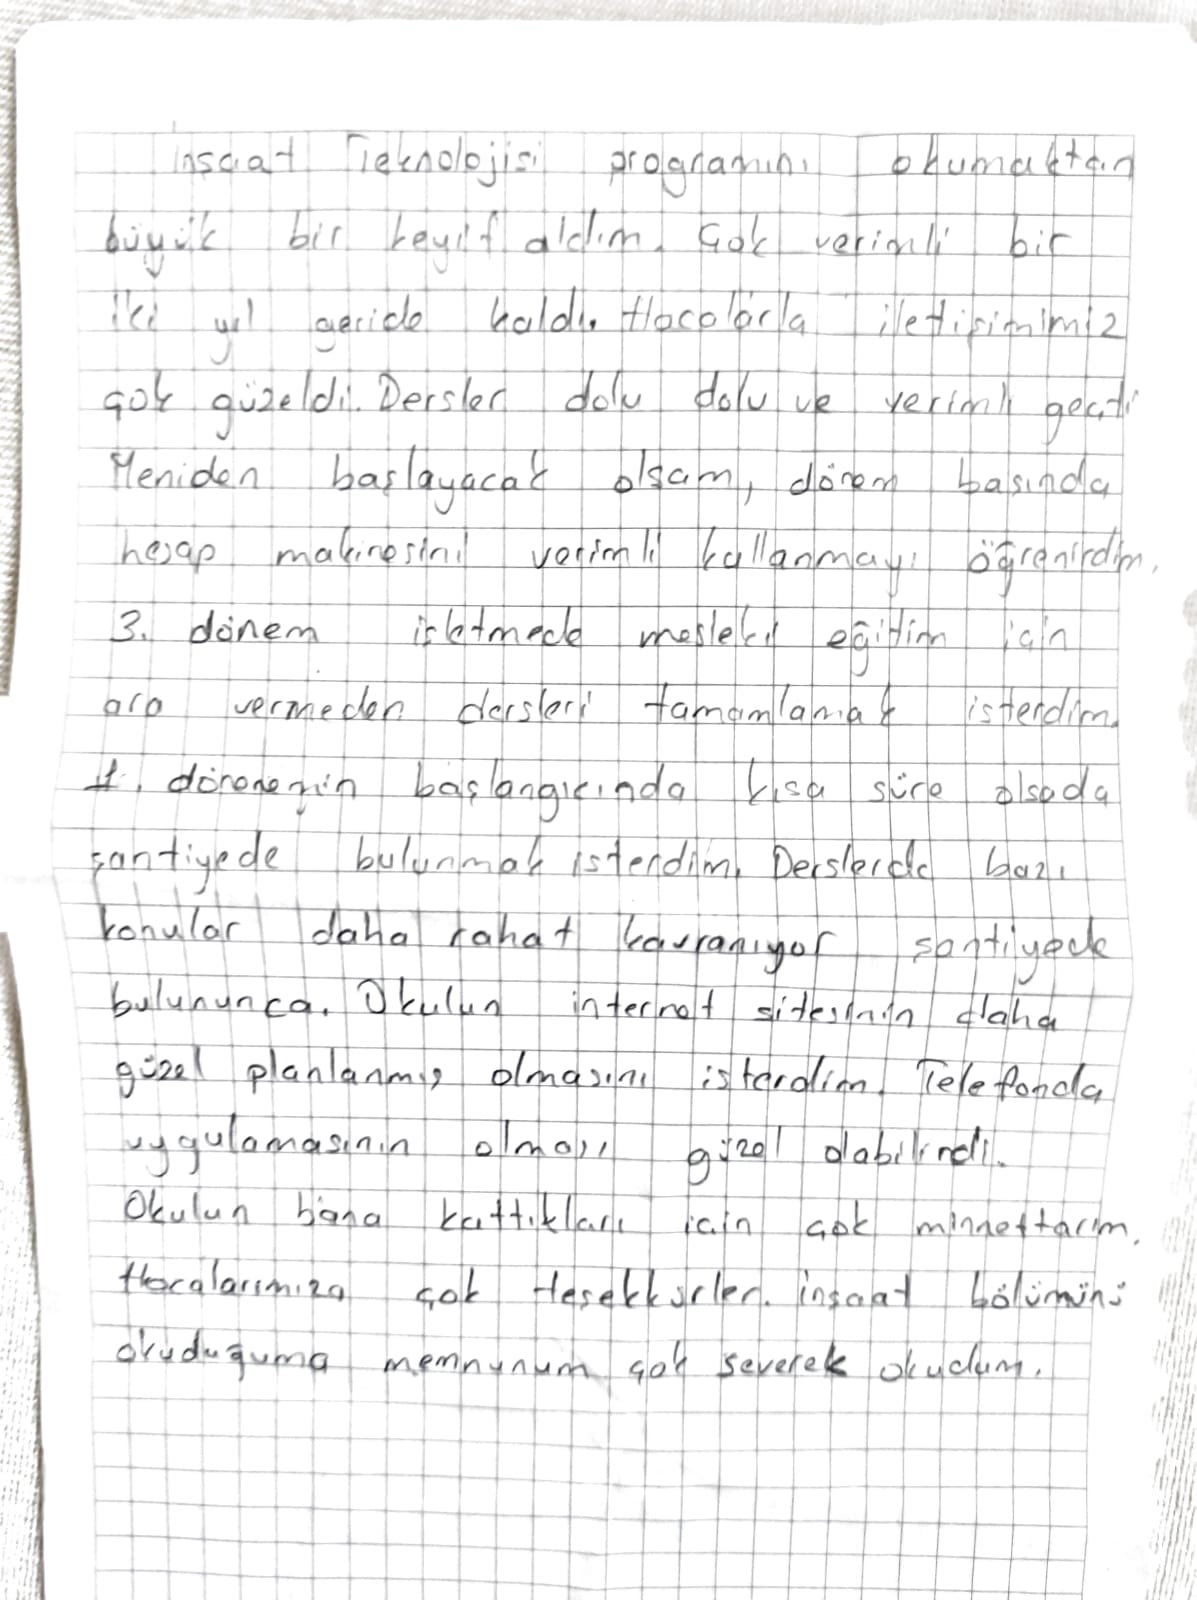 inşaat Teknolojisi programını okumaktan
büyük bir keyif aldım. Çok verimli bir
iki yıl geride kaldı. Hocalarla iletişimimiz
çok güzeldi. Dersler dolu dolu ve verimli geçti
Yeniden başlayacak olsam, dönem başında
hesap makinesini verimli kullanmayı öğrenirdim.
3. dönem işletmede mesleki eğitim için
ara vermeden dersleri tamamlamak isterdim.
1. dönemin başlangıcında kısa süre olsada
şantiyede bulunmak isterdim. Derslerde bazı
konular daha rahat kavranıyor şantiyede
bulununca. Okulun internet sitesinin daha
güzel planlanmış olmasını isterdim. Telefonda
uygulamasının olması güzel olabilirdi.
Okulun bana kattıkları için çok minnettarım.
Hocalarımıza çok teşekkürler. inşaat bölümünü
okuduğuma memnunum çok severek okudum.